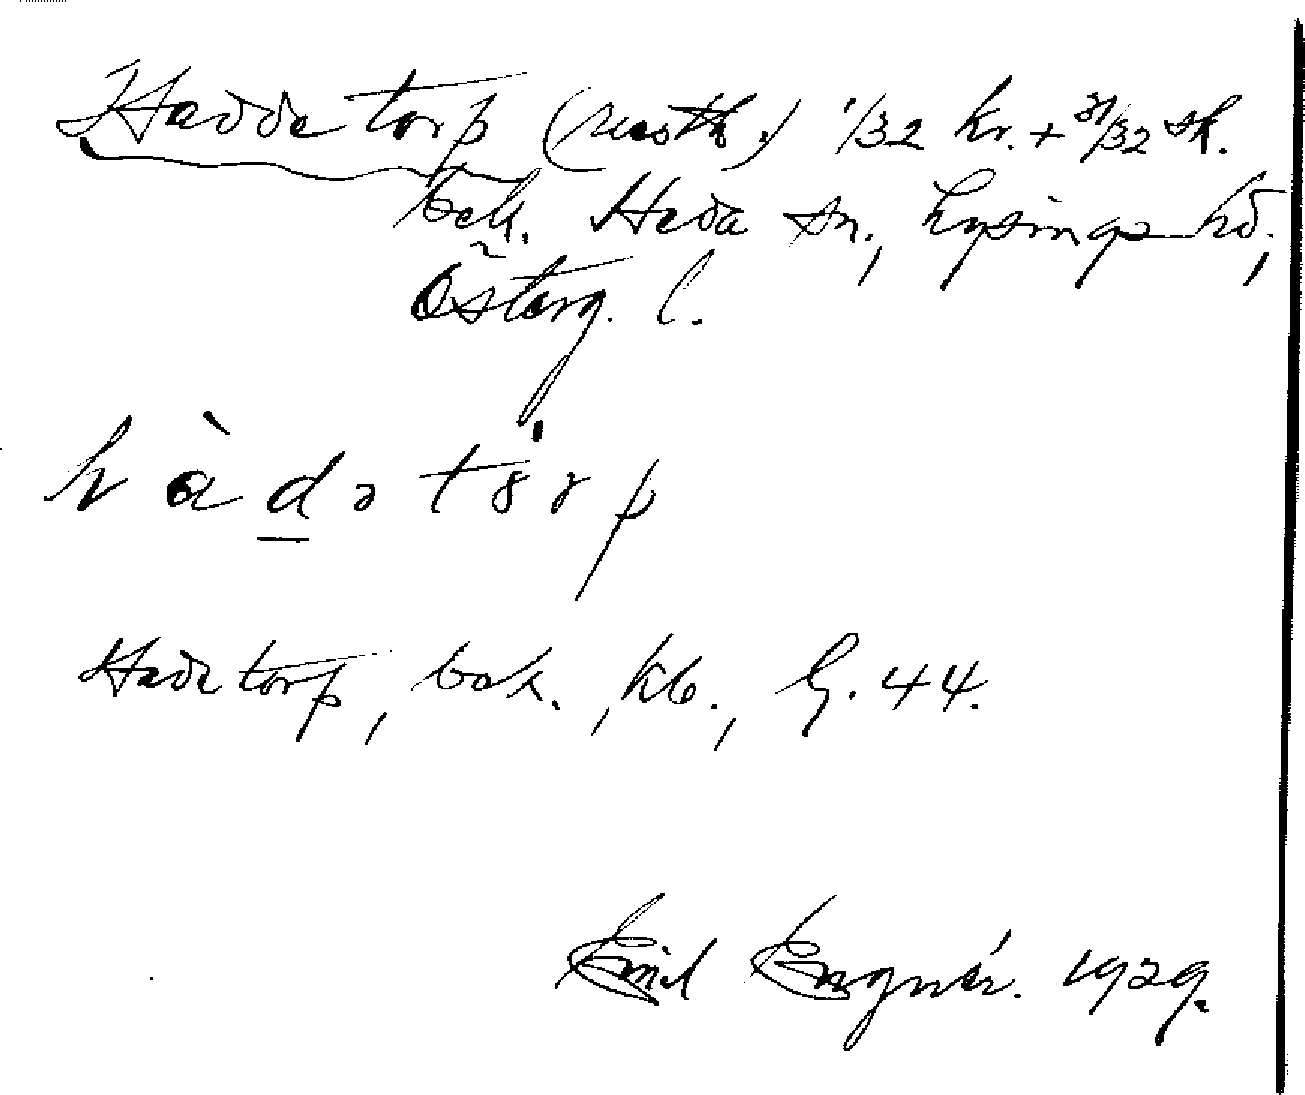 Haddetorp (rusth.) 1/32 kr. + 31/32 sk.
bek. Heda sn., Lysings hd.,
Österg. l.
hàdətȯrp
Hadetorp, bok., kb., G. 44.
Emil Engnér. 1929.